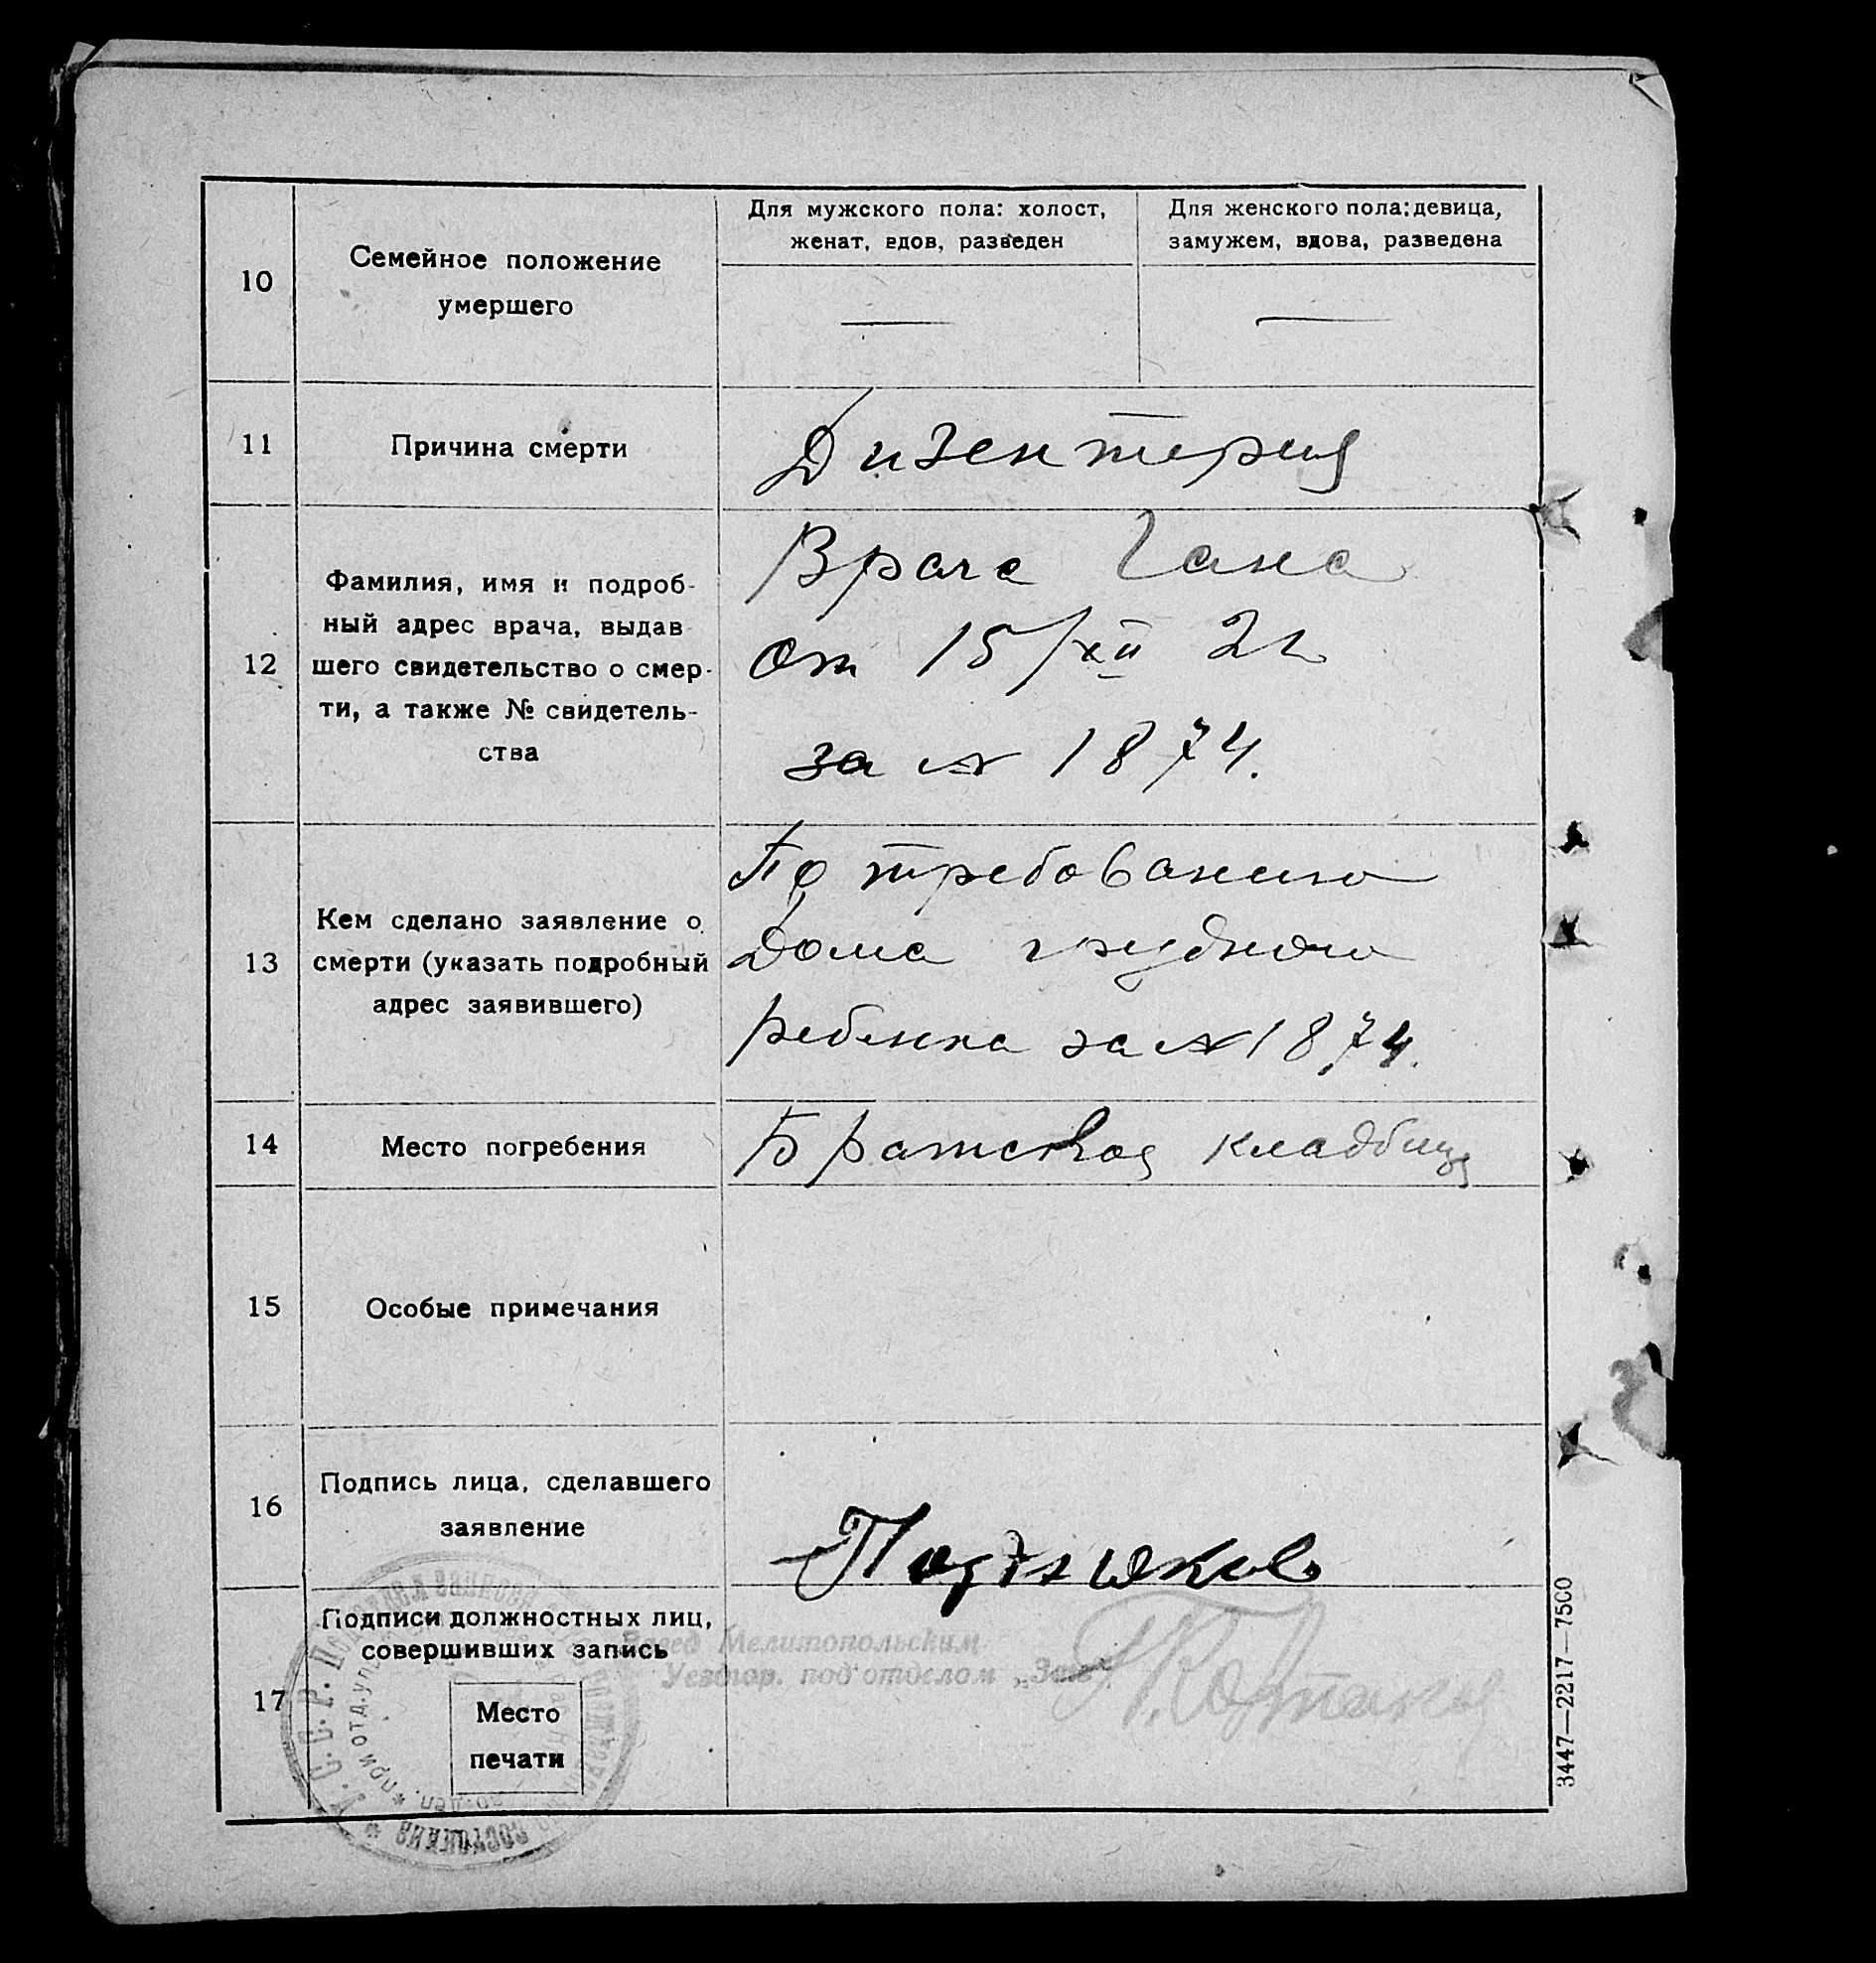 10
Семейное положение
умершего
Для мужского пола: холост,
женат, вдов, разведен
Для женского пола: девица,
замужем, вдова, разведена
11
Причина смерти
Дизентерия
12
Фамилия, имя и подроб-
ный адрес врача, выдав
шего свидетельство о смер-
ти, а также № свидетель-
ства
Врача Гана
от 15/XII 21
за № 1874.
13
Кем сделано заявление о
смерти (указать подробный
адрес заявившего)
По требованию
Дома грудного
ребенка за № 1874.
14
Место погребения
Братская кладбищ
15
Особые примечания
16
Подпись лица, сделавшего
заявление
17
Подписи должностных лиц,
совершивших запись
Место
печати
Завед Мелитопольским
Уездгор. под'отделом „Загс"
У. С. С. Р. Подотдел записей
состояния
3447—2217—7500